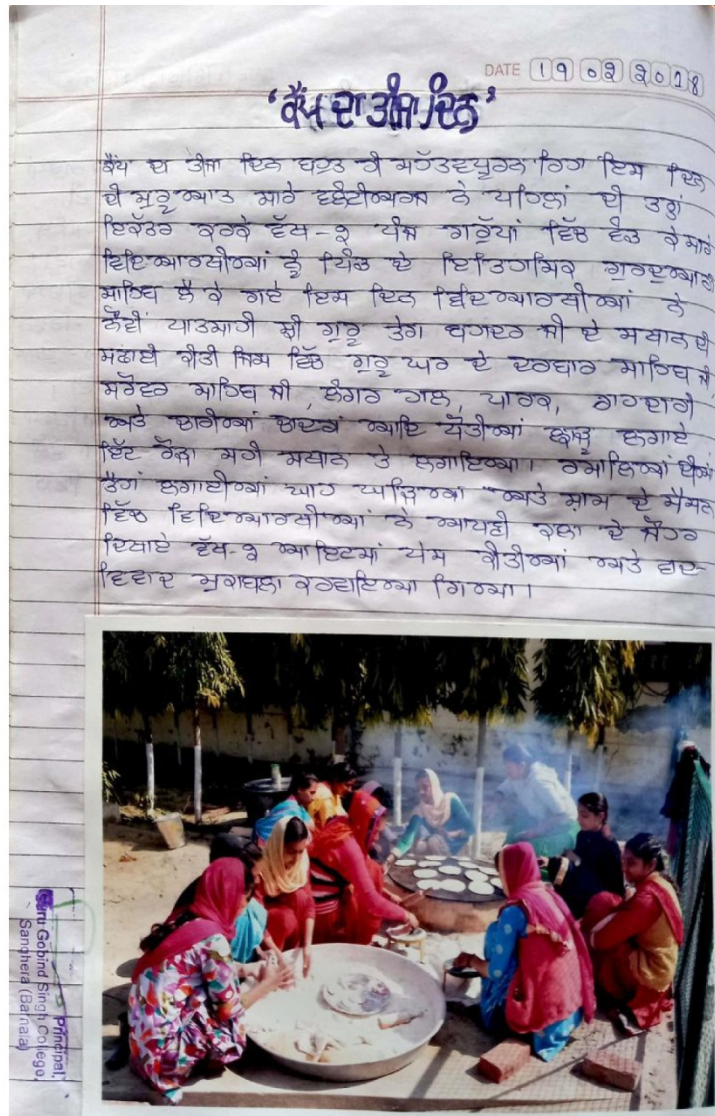 DATE 19 02 2018
'ਕੈਂਪ ਦਾ ਤੀਜਾ ਦਿਨ'
ਕੈਂਪ ਦਾ ਤੀਜਾ ਦਿਨ ਬਹੁਤ ਹੀ ਮਹੱਤਵਪੂਰਨ ਰਿਹਾ ਇਸ ਦਿਨ
ਦੀ ਸ਼ੁਰੂਆਤ ਸਾਰੇ ਵਲੰਟੀਅਰਜ਼ ਨੇ ਪਹਿਲਾਂ ਦੀ ਤਰ੍ਹਾਂ
ਇਕੱਤਰ ਕਰਕੇ ਵੱਖ-੨ ਪੰਜ ਗਰੁੱਪਾਂ ਵਿੱਚ ਵੰਡ ਕੇ ਸਾਰੇ
ਵਿਦਿਆਰਥੀਆਂ ਨੂੰ ਪਿੰਡ ਦੇ ਇਤਿਹਾਸਿਕ ਗੁਰਦੁਆਰਾ
ਸਾਹਿਬ ਲੈ ਕੇ ਗਏ ਇਸ ਦਿਨ ਵਿਦਿਆਰਥੀਆਂ ਨੇ
ਨੌਵੀਂ ਪਾਤਸ਼ਾਹੀ ਸ਼੍ਰੀ ਗੁਰੂ ਤੇਗ ਬਹਾਦਰ ਜੀ ਦੇ ਸਥਾਨ ਦੀ
ਸਫਾਈ ਕੀਤੀ ਜਿਸ ਵਿੱਚ ਗੁਰੂ ਘਰ ਦੇ ਦਰਬਾਰ ਸਾਹਿਬ ਜੀ,
ਸਰੋਵਰ ਸਾਹਿਬ ਜੀ, ਲੰਗਰ ਹਾਲ, ਪਾਰਕ, ਰਾਹਦਾਰੀ
ਅਤੇ ਚਾਦਰਾਂ ਆਦਿ ਧੋਤੀਆਂ ਝਾੜੂ ਲਗਾਏ
ਸਹੀ ਸਥਾਨ ਤੇ ਲਗਾਇਆ।
ਲਗਾਈਆਂ ਘਾਹ ਅਤੇ ਸ਼ਾਮ ਦੇ ਸੈਸ਼ਨ
ਵਿੱਚ ਵਿਦਿਆਰਥੀਆਂ ਨੇ ਆਪਣੀ ਕਲਾ ਦੇ ਜੌਹਰ
ਦਿਖਾਏ ਵੱਖ-੨ ਆਇਟਮਾਂ ਪੇਸ਼ ਕੀਤੀਆਂ ਅਤੇ ਵਾਦ-
ਵਿਵਾਦ ਮੁਕਾਬਲਾ ਕਰਵਾਇਆ ਗਿਆ।
Principal,
Guru Gobind Singh College,
Sanghera (Barnala)